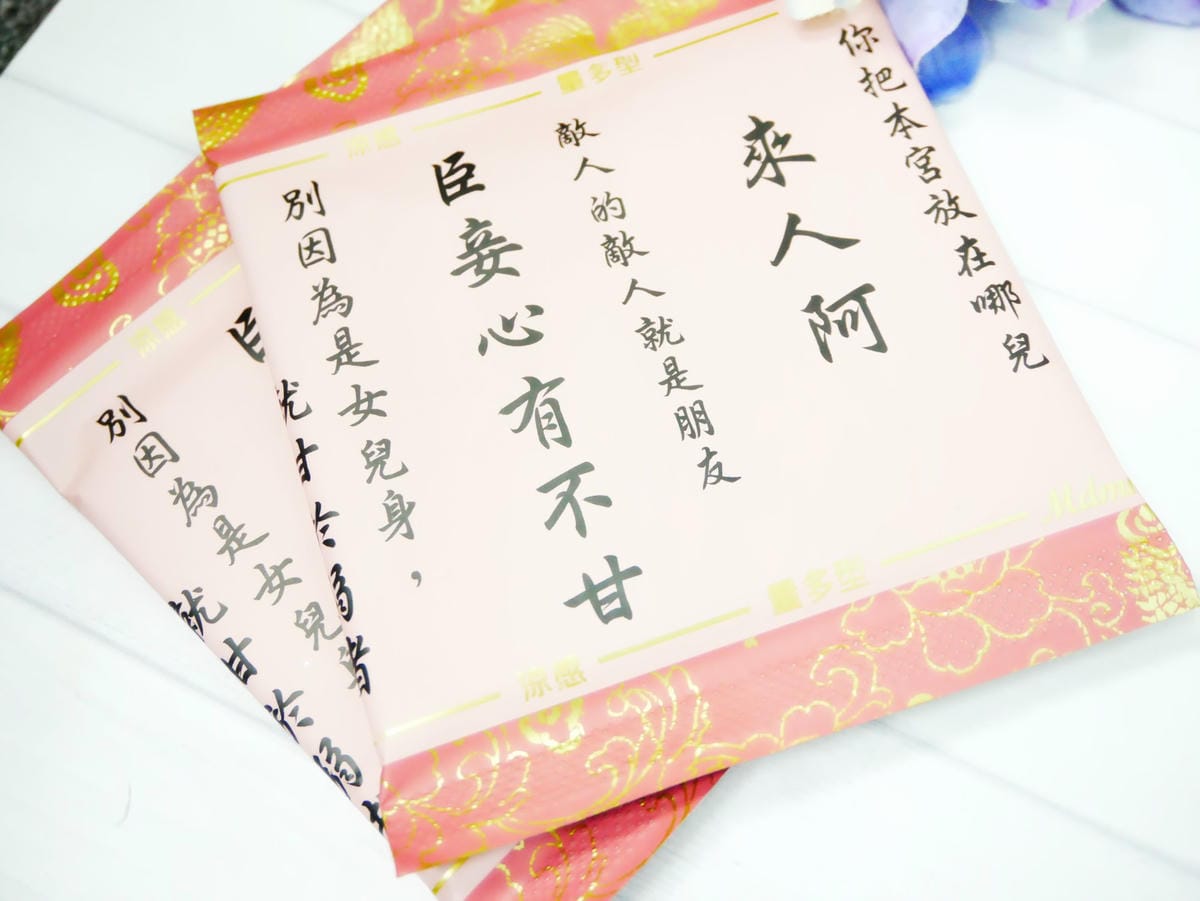 你把本宮放在哪兒
來人阿
敵人的敵人就是朋友
臣妾心有不甘
別因為是女兒身，
就甘於弱者
涼感
量多型
涼感
量多型
Mdm
涼感
臣
別因為是女兒
就甘於弱